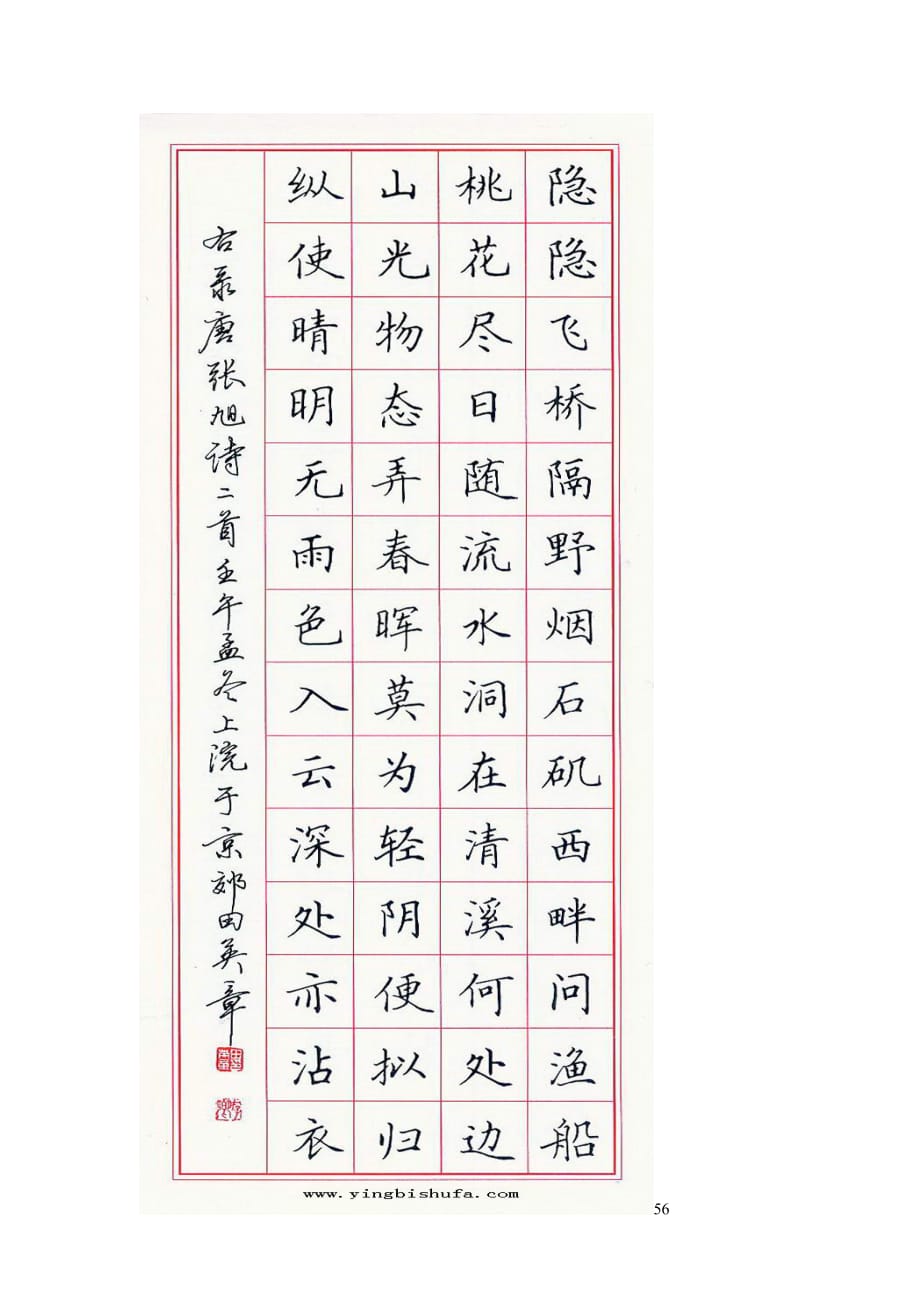 隐隐飞桥隔野烟石矶西畔问渔船
桃花尽日随流水洞在清溪何处边
山光物态弄春晖莫为轻阴便拟归
纵使晴明无雨色入云深处亦沾衣
右录唐张旭诗二首壬午孟冬上浣于京郊田英章
www.yingbishufa.com
56